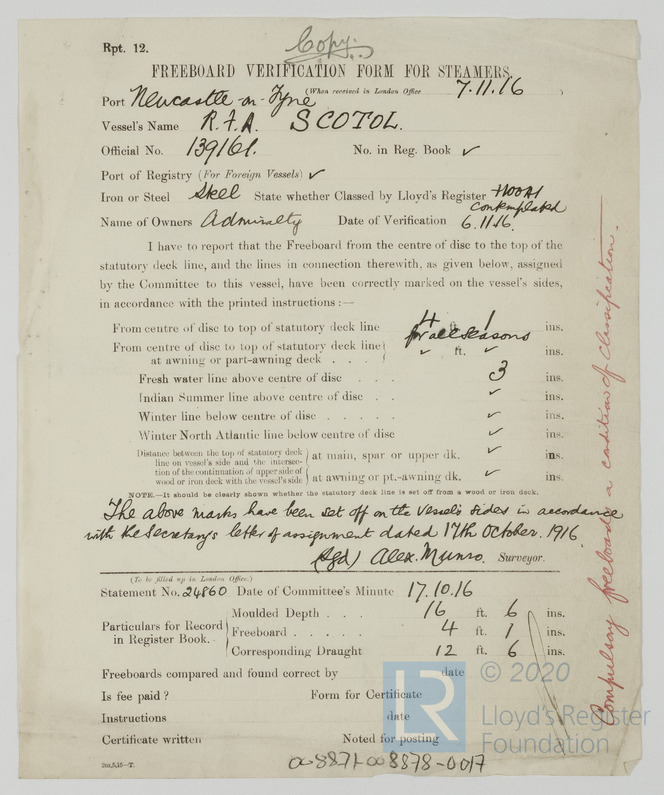 Rpt. 12.
Copy.
FREEBOARD VERIFICATION FORM FOR STEAMERS.
(When received in London Office 7.11.16 )
Port Newcastle-on-Tyne
Vessel's Name R.F.A. SCOTOL.
Official No. 139161. No. in Reg. Book ✓
Port of Registry (For Foreign Vessels) ✓
Iron or Steel Steel State whether Classed by Lloyd's Register +100A1 contemplated
Name of Owners Admiralty Date of Verification 6.11.16.
I have to report that the Freeboard from the centre of disc to the top of the
statutory deck line, and the lines in connection therewith, as given below, assigned
by the Committee to this vessel, have been correctly marked on the vessel's sides,
in accordance with the printed instructions :—
From centre of disc to top of statutory deck line 4 ft. 1 ins.
for all seasons
From centre of disc to top of statutory deck line
at awning or part-awning deck . . . ✓ ft. ✓ ins.
Fresh water line above centre of disc . . . 3 ins.
Indian Summer line above centre of disc . . ✓ ins.
Winter line below centre of disc . . . . . ✓ ins.
Winter North Atlantic line below centre of disc ✓ ins.
Distance between the top of statutory deck
line on vessel's side and the intersec-
tion of the continuation of upper side of
wood or iron deck with the vessel's side
at main, spar or upper dk. ✓ ins.
at awning or pt.-awning dk. ✓ ins.
NOTE.—It should be clearly shown whether the statutory deck line is set off from a wood or iron deck.
The above marks have been set off on the vessel's sides in accordance
with the Secretary's letter of assignment dated 17th October. 1916
(Sgd) Alex. Munro. Surveyor.
(To be filled up in London Office.)
Statement No. 24860 Date of Committee's Minute 17.10.16
Particulars for Record
in Register Book.
Moulded Depth . . . 16 ft. 6 ins.
Freeboard . . . . . 4 ft. 1 ins.
Corresponding Draught 12 ft. 6 ins.
Freeboards compared and found correct by date
Is fee paid ? Form for Certificate
Instructions date
Certificate written Noted for posting
2m,5,15—T.
008871-008878-0017
Compulsory freeboard a condition of classification.
LR
© 2020
Lloyd's Register
Foundation